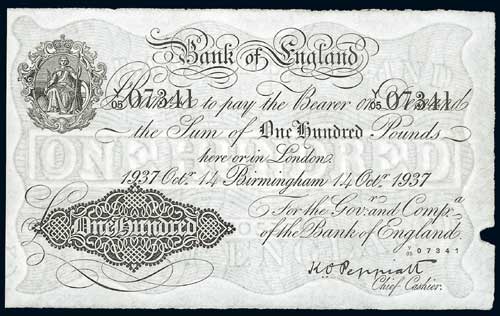 Bank of England
Y/05 07341 Y/05 07341
Promise to pay the Bearer on Demand
the Sum of One Hundred Pounds
here or in London.
1937 Octr. 14 Birmingham 14 Octr. 1937
For the Govr. and Compa.
of the Bank of England.
£ One Hundred
Y/05 07341
K O Peppiatt
Chief Cashier.
ONE HUNDRED